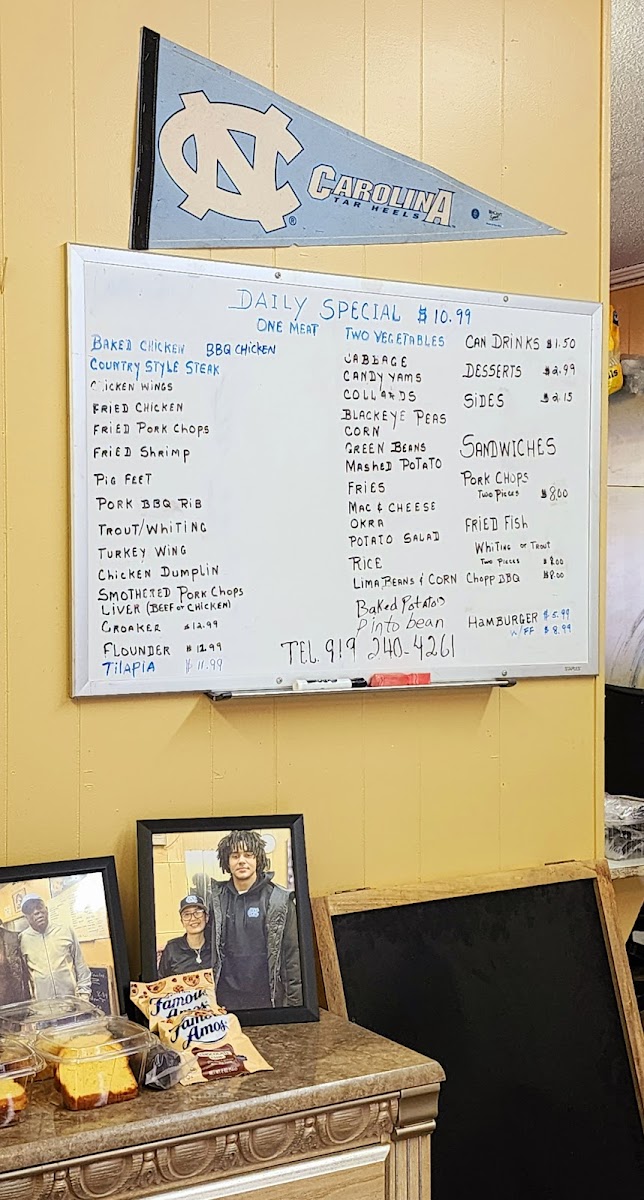 NC
CAROLINA
TAR HEELS
DAILY SPECIAL $10.99
ONE MEAT TWO VEGETABLES
BAKED CHICKEN BBQ CHICKEN
COUNTRY STYLE STEAK
CHICKEN WINGS
FRIED CHICKEN
FRIED PORK CHOPS
FRIED SHRIMP
PIG FEET
PORK BBQ RIB
TROUT/WHITING
TURKEY WING
CHICKEN DUMPLIN
SMOTHETED PORK CHOPS
LIVER (BEEF OR CHICKEN)
CROAKER $12.99
FLOUNDER $12.99
TILAPIA $11.99
CABBAGE
CANDY YAMS
COLLARDS
BLACKEYE PEAS
CORN
GREEN BEANS
MASHED POTATO
FRIES
MAC & CHEESE
OKRA
POTATO SALAD
RICE
LIMA BEANS & CORN
Baked Potatos
Pinto bean
CAN DRINKS $1.50
DESSERTS $2.99
SIDES $2.15
SANDWICHES
PORK CHOPS
TWO PIECES $8.00
FRIED FISH
WHITING OR TROUT
TWO PIECES $8.00
CHOPP BBQ $8.00
HAMBURGER $5.99
W/FF $8.99
TEL. 919 240-4261
STAPLES
Famous
Amos
Famous
Amos